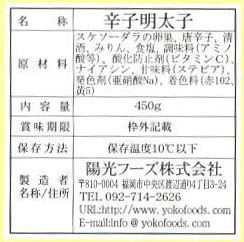 名称 辛子明太子
原材料 スケソーダラの卵巣、唐辛子、清
酒、みりん、食塩、調味料(アミノ
酸等)、酸化防止剤(ビタミンC)、
ナイアシン、甘味料(ステビア)、
発色剤(亜硝酸Na)、着色料(赤102、
黄5)
内容量 450g
賞味期限 枠外記載
保存方法 保存温度10℃以下
製造者名称/住所 陽光フーズ株式会社
〒810-0004 福岡市中央区渡辺通04丁目3-24
TEL 092-714-2626
URL:http://www.yokofoods.com
E-mail:info@yokofoods.com